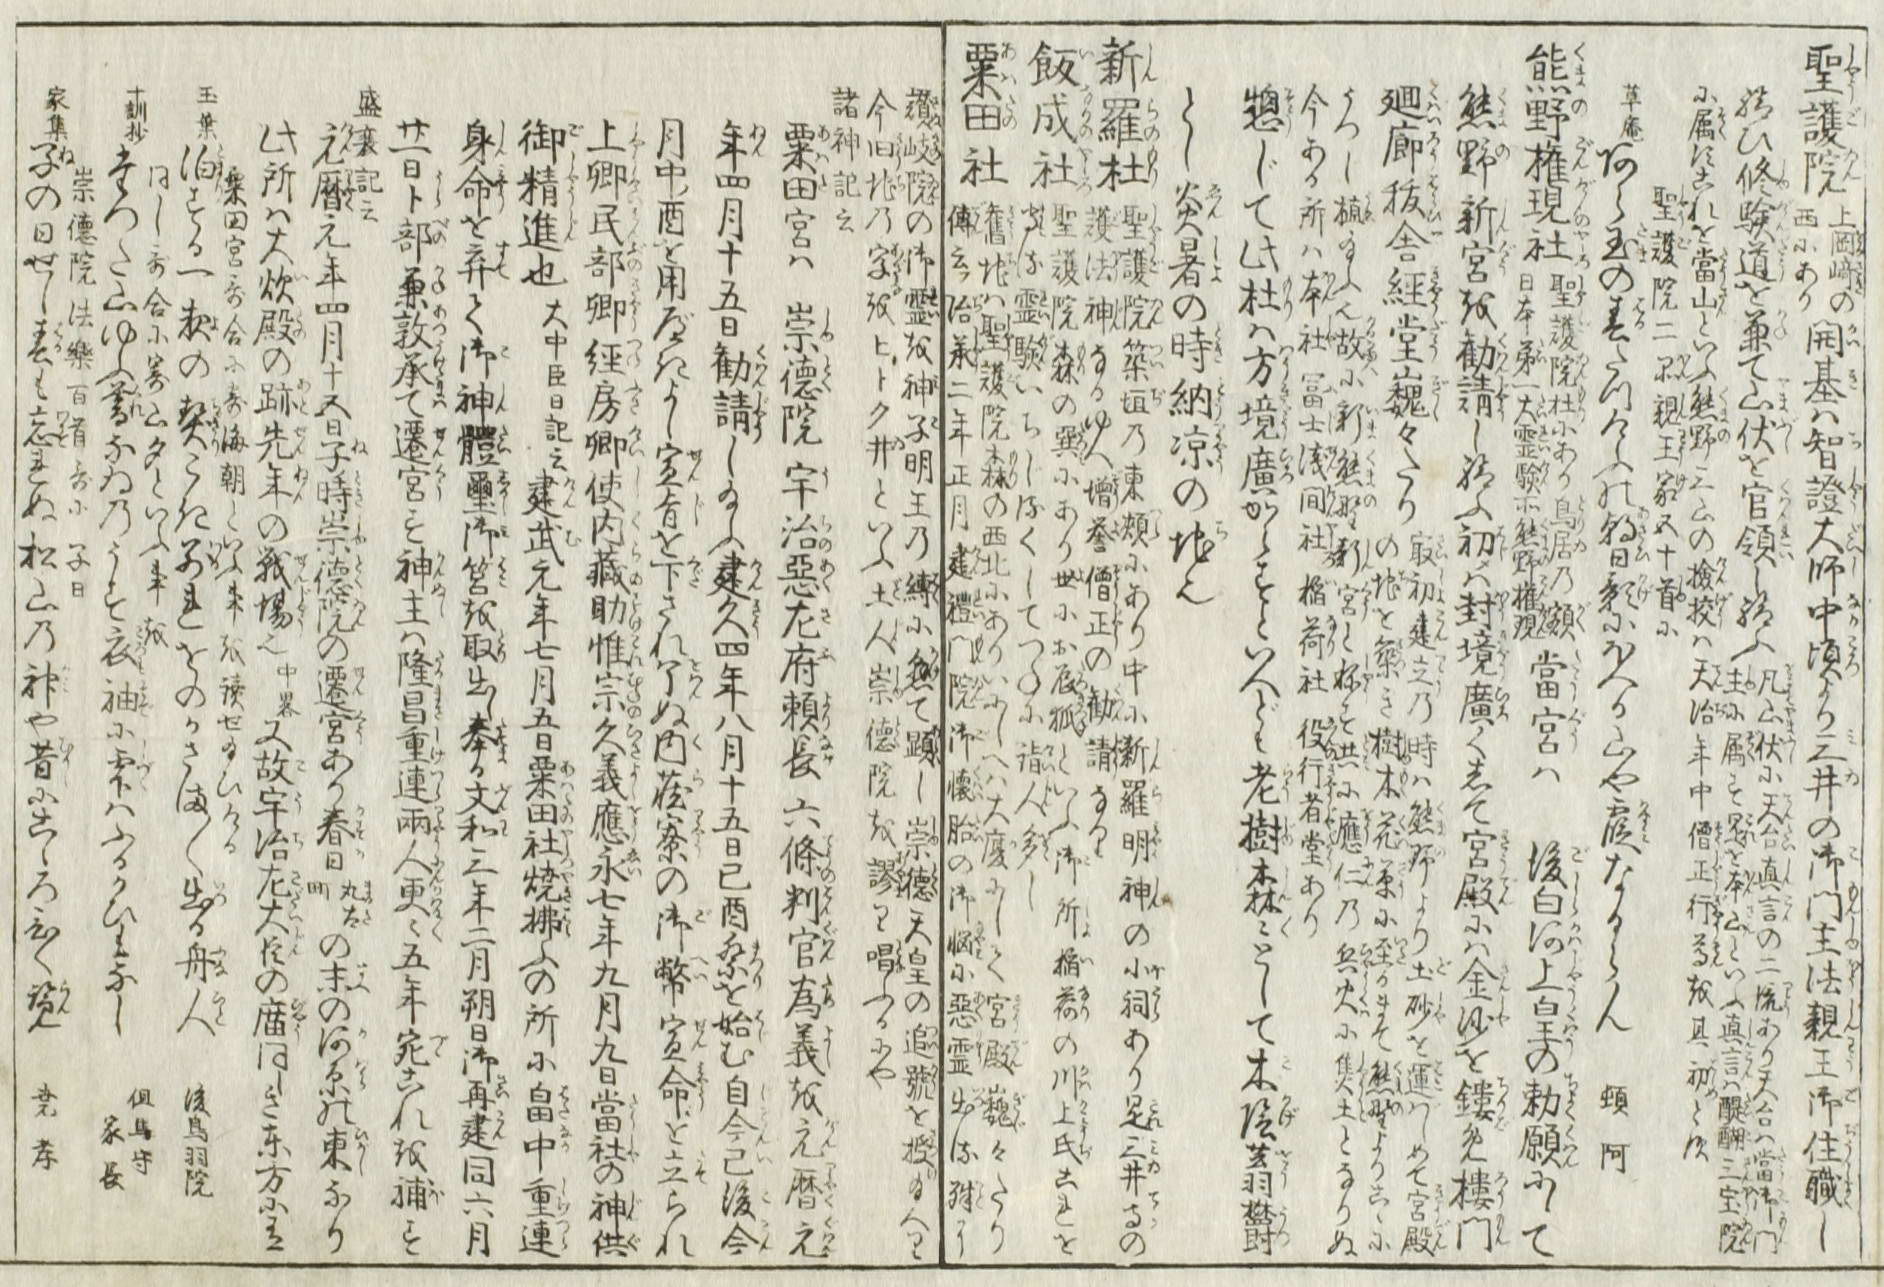 聖護院 上岡﨑の西にあり 開基は智證大師中頃より三井の御門主法親王御住職し
給ひ修験道を兼て山伏を官領し給ふ 凡山伏に天台真言の二流あり天台は當御門主に属す是を本山といふ真言は醍醐三宝院
に属すこれを當山といふ熊野三山の撿挍は天治年中僧正行尊を其初とす
聖護院二品親王家五十首に
草庵 あら玉の春たつけふの朝日影にほふや霞なるらん 頓阿
熊野権現社 聖護院杜にあり鳥居の額日本第一大霊験所熊野権現 當宮は 後白河上皇の勅願にして
熊野新宮を勧請し給ふ初は封境廣くして宮殿には金沙を鏤め楼門
廻廊抜舎経堂巍々たり 最初建立の時は熊野より土砂を運ばしめて宮殿の地を築き樹木花草に至るまて熊野よりこゝに
うつし植給ふ故に新熊野新宮と称す共に應仁の兵火に焦土となりぬ
今ある所は本社冨士浅間社稲荷社役行者堂あり
惣じて此杜は方境廣からずといへども老樹森々として木陰蓊鬱
とし炎暑の時納凉の地也
新羅社 聖護院築垣の東頬にあり中に新羅明神の小祠あり是三井寺の護法神なるゆへ増誉僧正の勧請なり
飯成社 聖護院森の巽にあり世にお辰狐といふ御所稲荷の川上氏これを守る霊験いちじるくしてつねに詣人多し
粟田社 舊地は聖護院森の西北にありいにしへは大廈にして宮殿巍々たり傳云治承二年正月建禮門院御懐胎の御悩に悪霊出る殊に
讃岐院の御霊を神子明王の縛に懸て顕し崇徳天皇の追號を授給へり
今旧地の字をヒトク井といふ土人崇徳院を謬り唱ふるにや
諸神記云
粟田宮は 崇徳院 宇治悪左府頼長 六條判官為義を元暦元
年四月十五日勧請し給ふ建久四年八月十五日己酉祭を始む自今已後今
月中酉を用べきよし宣旨を下され了ぬ内蔵寮の御幣宣命を立られ
上卿民部卿経房卿使内蔵助惟宗久義應永七年九月九日當社の神供
御精進也 大中臣日記云 建武元年七月五日粟田社焼拂ふの所に畠中重連
身命を弃て御神體璽御筥を取出し奉る文和三年二月朔日御再建同六月
廿一日卜部兼敦承て遷宮す神主は隆昌重連兩人更〻五年宛これを補す
盛衰記云
元暦元年四月十五日子時崇徳院の遷宮あり春日 の末の河原の東なり
此所は大炊殿の跡先年の戦場也 中畧 又故宇治左大臣の廟同しき東方にす
粟田宮哥合に寄海朝といふ事を読せ給ひける
玉葉 泊する一夜の契こき別れをのかさま〳〵出る舟人 後鳥羽院
同し哥合に寄山夕といふ事を
十訓抄 なかゐの 衣袖に雫は 但馬守家長
崇徳院法樂百首哥に 子日
家集 子の日せし春も忘れぬ松山の神や昔にこゝろひく覧 尭孝